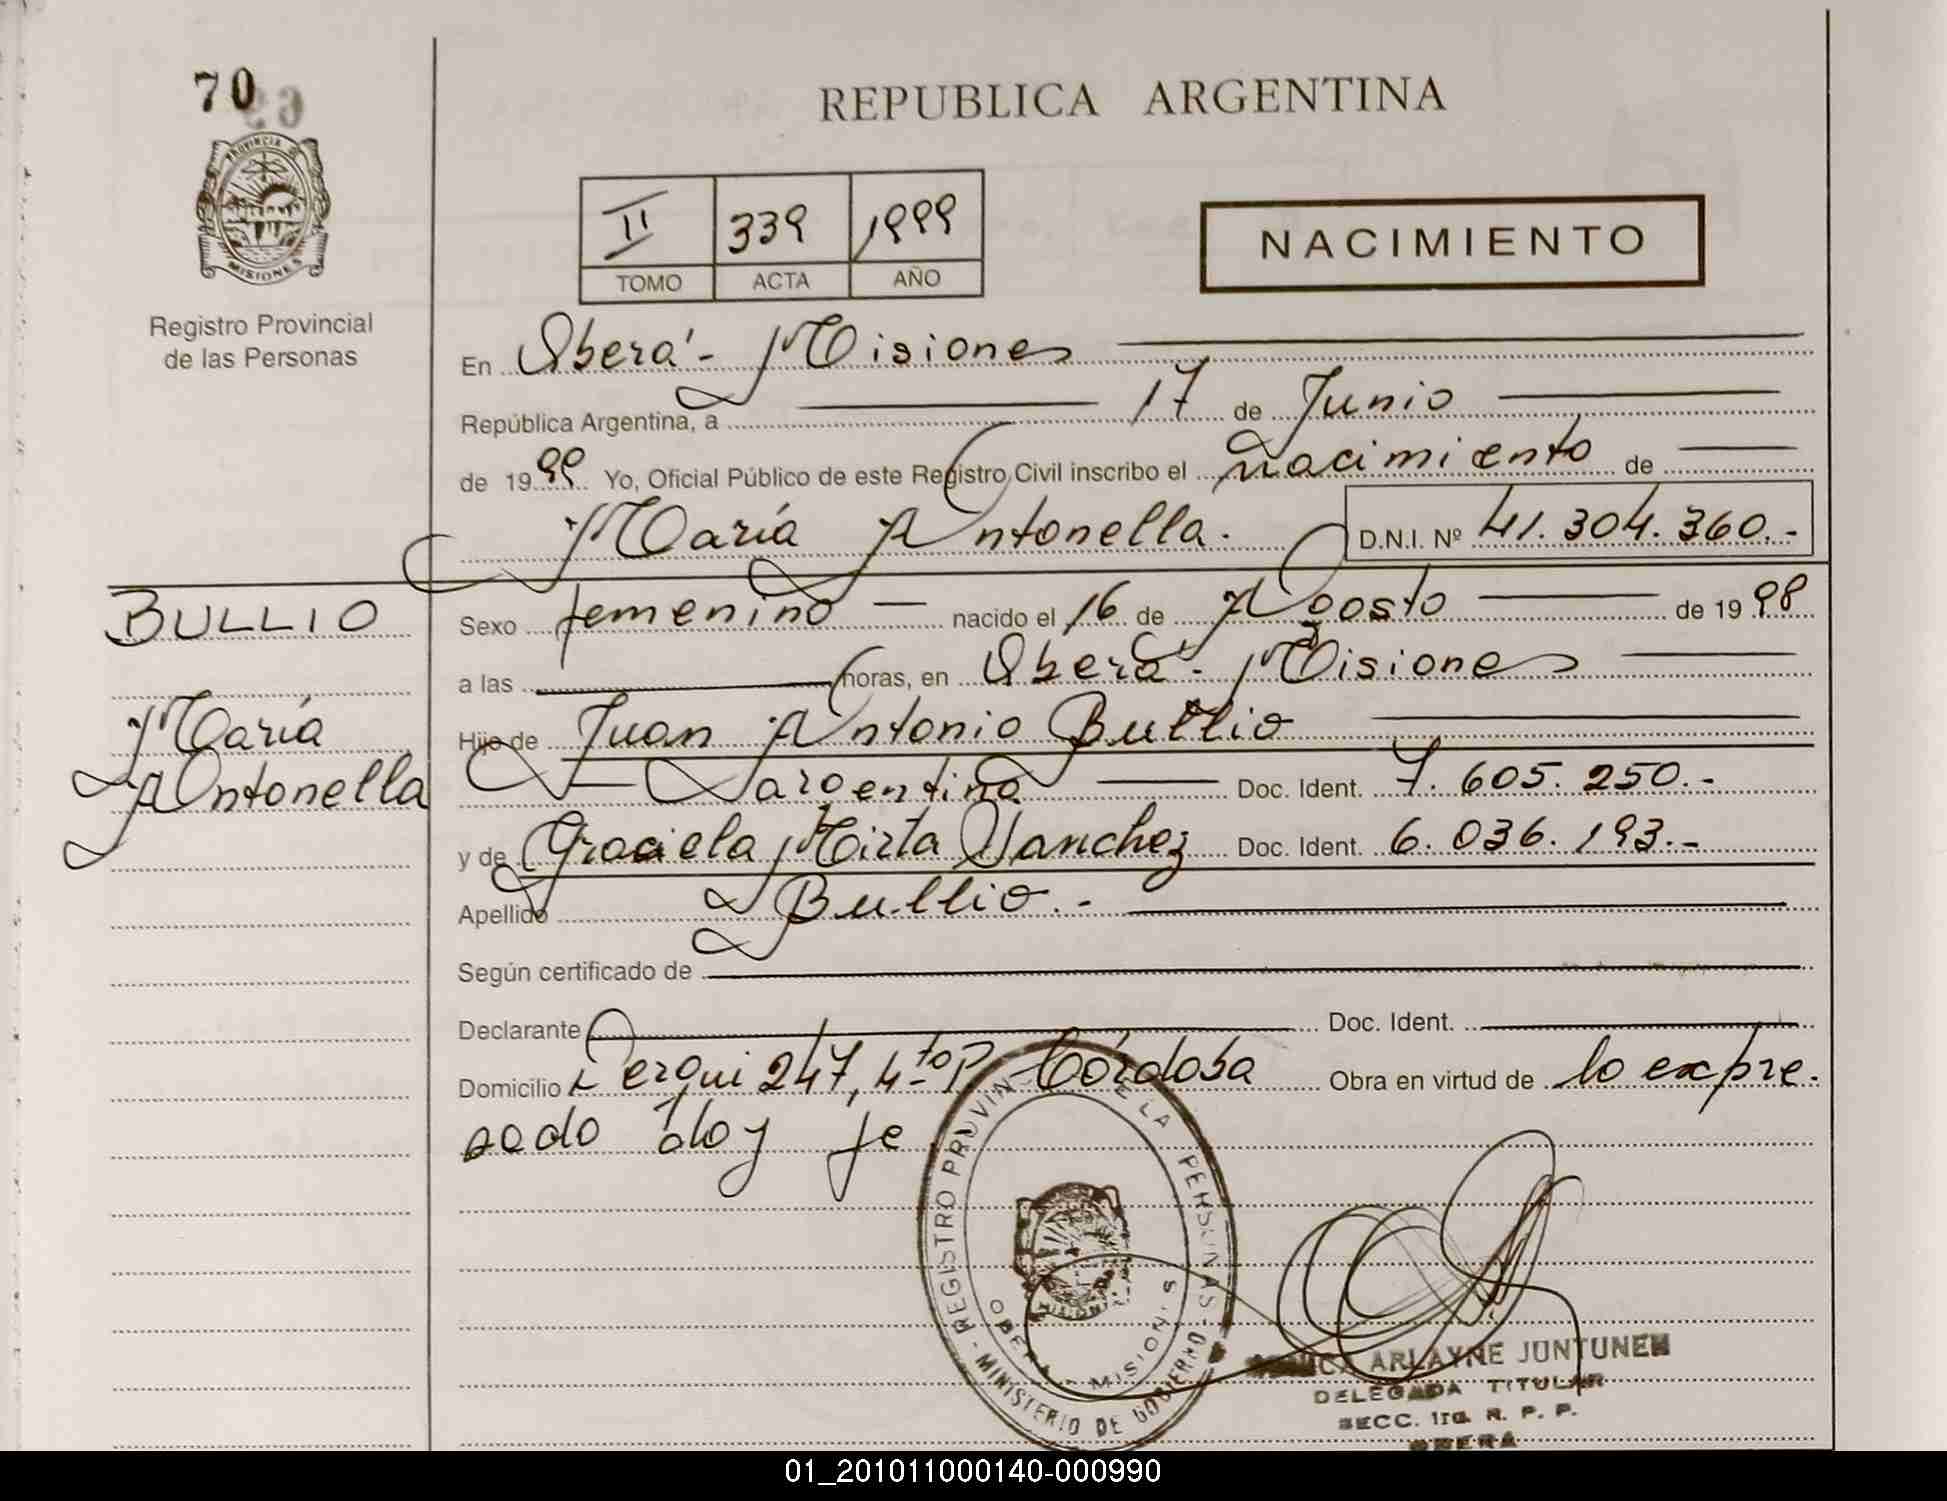 70
PROVINCIA D
MISIONES
Registro Provincial
de las Personas
REPUBLICA ARGENTINA
II 339 1999
TOMO ACTA AÑO
NACIMIENTO
En Oberá - Misiones
República Argentina, a 17 de Junio
de 1999 Yo, Oficial Público de este Registro Civil inscribo el nacimiento de
María Antonella. D.N.I. Nº 41.304.360.-
BULLIO
María
Antonella
Sexo femenino nacido el 16 de Agosto de 1998
a las horas, en Oberá - Misiones
Hijo de Juan Antonio Bullio
argentina Doc. Ident. 7.605.250.-
y de Graciela Mirta Sanchez Doc. Ident. 6.036.193.-
Apellido Bullio.-
Según certificado de
Declarante Doc. Ident.
Domicilio Derqui 247, 4to P. Córdoba Obra en virtud de lo expre.
sado doy fe
REGISTRO PROVIN DE LA PERSONAS
- MINISTERIO DE GOBIERNO -
OBERA - MISIONES
ARLAYNE JUNTUNEN
DELEGADA TITULAR
SECC. 1ra. R. P. P.
OBERA
01_201011000140-000990